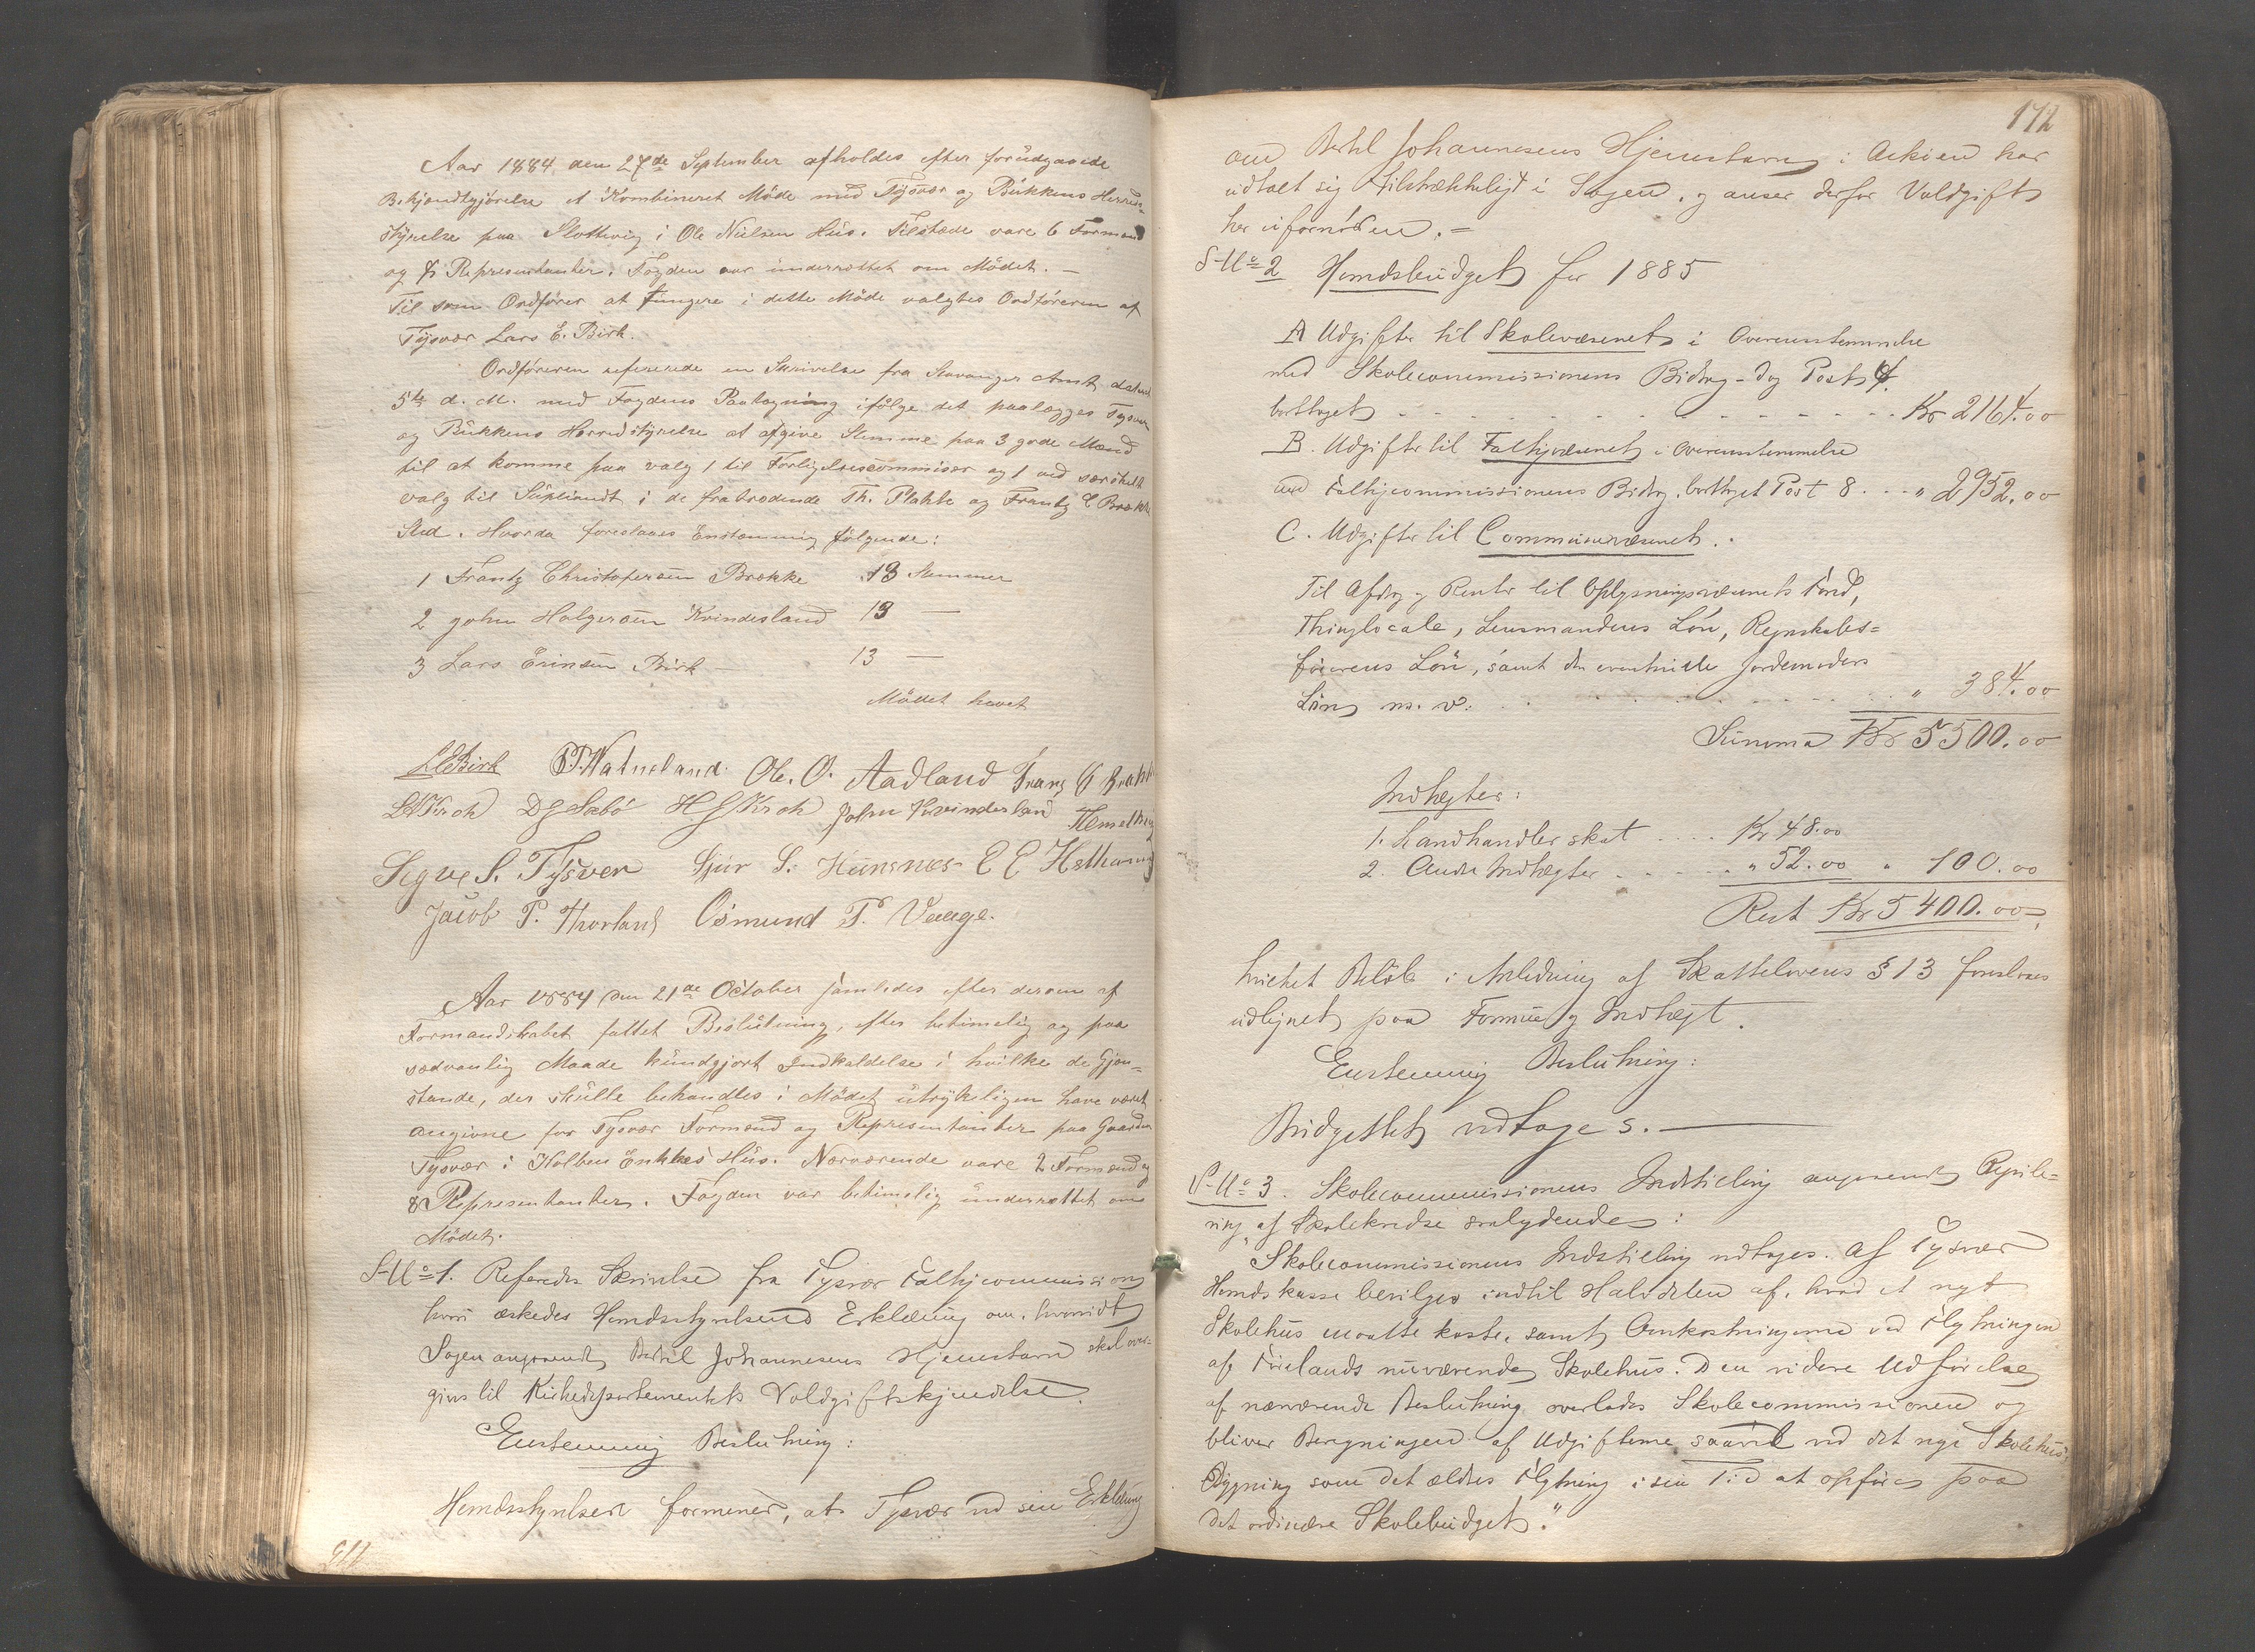 Aar 1884 den 27de September afholdes efter forudgaaende
Bekjændtgjörelse et Kombineret Möde med Tysvær og Bukkens Herreds-
styrelse paa Slottevig i Ole Nielsen Hus. Tilstæde vare 6 Formænd
og 7 Representanter. Fogden var underrettet om Mödet. —
Til som Ordförer at fungere i dette Möde valgtes Ordföreren af
Tysvær Lars E. Birk.
Ordföreren refererede en Skrivelse fra Stavanger Amt dateret
5te d. M. med Fogdens Paategning ifölge det paalægges Tysvær
og Bukkens Herredstyrelse at afgive Stemme paa 3 gode Mænd
til at komme paa valg 1 til Forligelsescommisær og 1 ved særskilt
valg til Supleandt i de fratrædende Th. Plahte og Frantz C Brække
Sted. Hvorda foreslaaes Enstemmig fölgende:
1 Frantz Christofersen Brække 13 Stemmer
2 John Holgersen Kvindesland 13 —
3 Lars Erinsen Birk — 13 —
Mödet hævet
LEBirk PTWatneland. Ole. O. Aadland Frans C Brække
LAKroh DGSæbö HGKroh John Kvindesland
Sigve S. Tysver Sjur S. Hünsnes E E Hetland
Jacob P. Thorland Osmund T. Vaage.
Aar 1884 den 21de October samledes efter derom af
Formandskabet fattet Beslutning, efter betimelig og paa
sædvanlig Maade kundgjort Indkaldelse i hvilke de Gjen-
stande, der skulle behandles i Mödet utrykeligen have været
angivne for Tysvær Formænd og Representanter paa Gaarden
Tysvær i Kolbens Enkkes Hus. Nærværende vare 2 Formænd og
8 Representanter. Fogden var betimelig underrettet om
Mödet.
S-No 1. Referedes Skrivelse fra Tysvær Fattigcommission
hvori æskedes Herredsstyrelsens Erklæring om, hvorvidt
Sagen angaaende Bertil Johannesens Hjemstavn skal over-
gives til Kirkedepartementets Voldgiftskjendelse.
Enstemmig Beslutning:
Herredsstyrelsen formener, at Tysvær ved sin Erklæring
172
om Bertil Johannesens Hjemstavn i Askien har
udtalt sig tilstrækkeligt i Sagen, og anser derfor Voldgift
her ufornöden. —
S-No 2 Herredsbudget for 1885
A Udgifter til Skolevæsenet i Overeensstemmelse
med Skolecommissionens Bidrag - dog Post 4
borttaget - - - - Kr 2164.00
B. Udgifter til Fattigvæsenet i Overeensstemmelse
med Fattigcommissionens Bidrag, borttaget Post 8 . . . „ 2952.00
C. Udgifter til Communevæsenet. .
Til Afdrag og Renter til Oplysningsvæsenets Fond,
Thinglocale, Lensmandens Lön, Regnskabs-
förerens Lön, samt den eventuelle Jordemoders
Lön m. v: . . . . „ 384.00
Summa Kr 5500.00
Indtægter:
1. Landhandlerskat . . . . Kr 48.00
2. Andre Indtægter . . . . „ 52.00 „ 100.00
Rest Kr 5400.00,
hvilket Belöb i Anledning af Skattelovens § 13 foreslaaes
udlignet paa Formue og Indtægt.
Enstemmig Beslutning:
Budgettet vedtages. —
S-No 3. Skolecommissionens Indstilling angaaende Regule-
ring af Skolekredse saalydende:
„Skolecommissionens Indstilling vedtages. Af Tysvær
Herredskasse bevilges indtil Halvdelen af, hvad et nyt
Skolehus maatte koste, samt Omkostningerne ved Flytningen
af Förelands nuværende Skolehus. Den videre Udförelse
af nærværende Beslutning overlades Skolecommissionen og
bliver Beregningen af Udgifterne saavel ved det nye Skolehus
Bygning som det ældres Flytning i sin Tid at opföres paa
det ordinære Skolebudget."